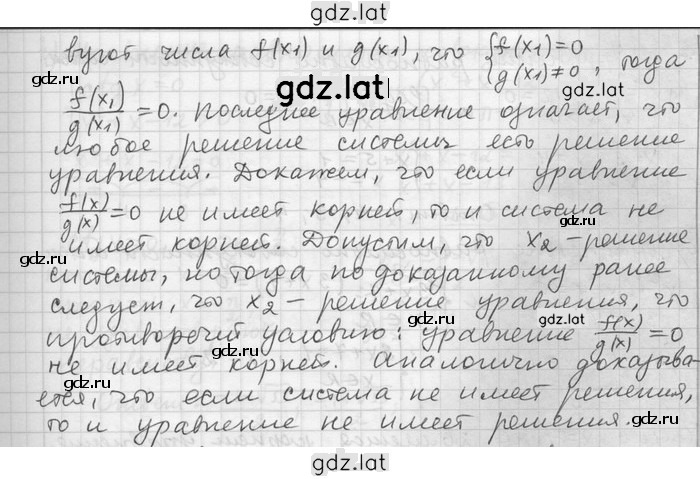 gdz.lat
вуют числа f(x₁) и g(x₁), что {f(x₁)=0
{g(x₁)≠0, тогда
f(x₁)/g(x₁)=0. Последнее уравнение означает, что
любое решение системы есть решение
уравнения. Докажем, что если уравнение
f(x)/g(x)=0 не имеет корней, то и система не
имеет корней. Допустим, что x₂ – решение
системы, но тогда по доказанному ранее
следует, что x₂ – решение уравнения, что
противоречит условию: уравнение f(x)/g(x)=0
не имеет корней. Аналогично доказыва-
ется, что если система не имеет решения,
то и уравнение не имеет решения.
gdz.lat
gdz.lat
gdz.lat
gdz.lat
gdz.lat
gdz.lat
gdz.lat
gdz.lat
gdz.lat
gdz.lat
gdz.lat